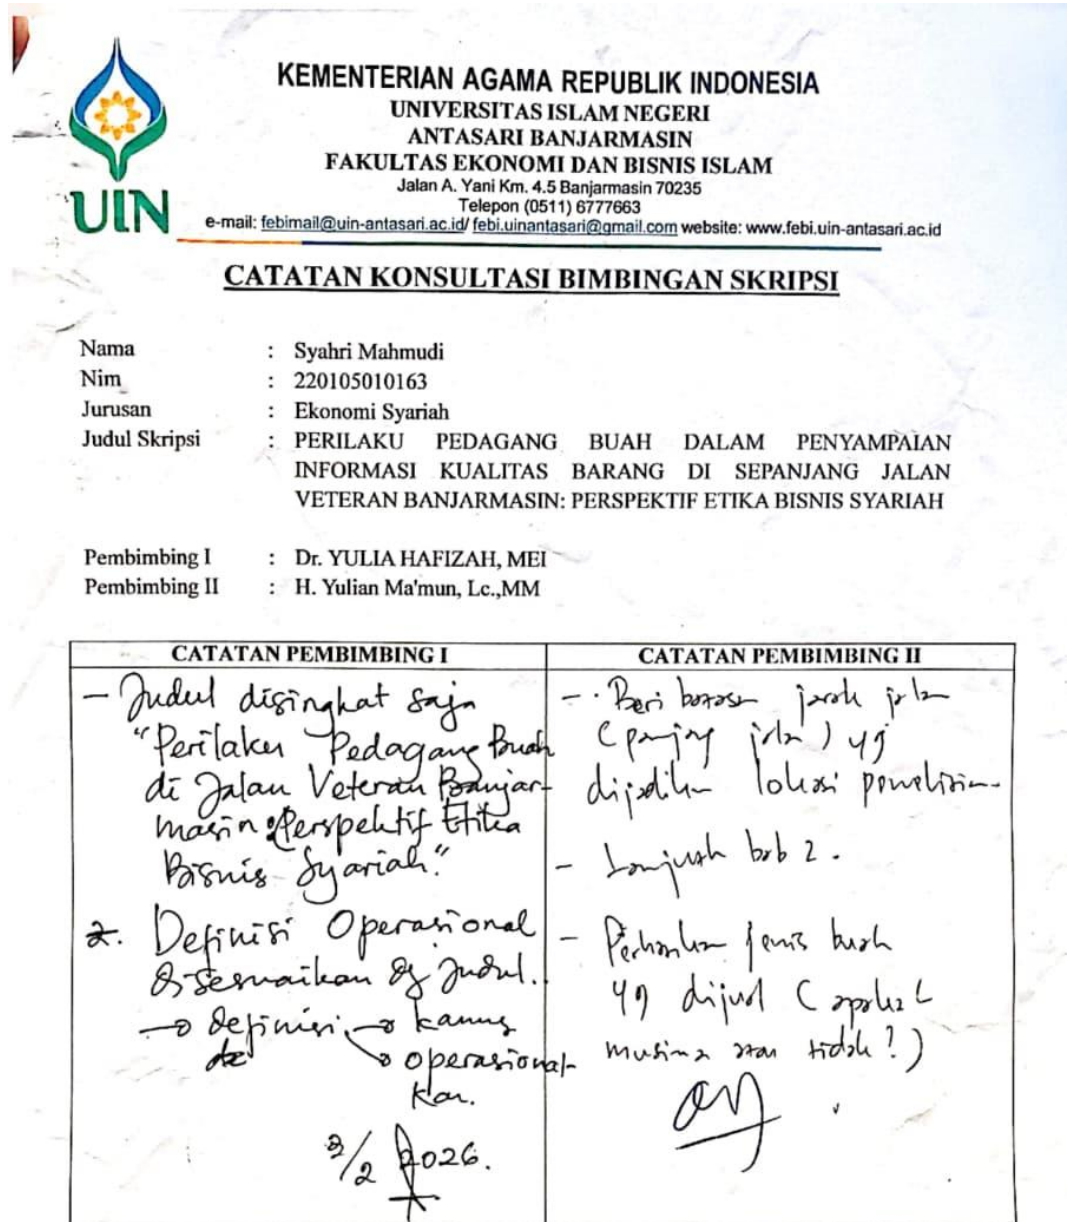 KEMENTERIAN AGAMA REPUBLIK INDONESIA
UNIVERSITAS ISLAM NEGERI
ANTASARI BANJARMASIN
FAKULTAS EKONOMI DAN BISNIS ISLAM
Jalan A. Yani Km. 4.5 Banjarmasin 70235
Telepon (0511) 6777663
e-mail: febimail@uin-antasari.ac.id/ febi.uinantasari@gmail.com website: www.febi.uin-antasari.ac.id
UIN
CATATAN KONSULTASI BIMBINGAN SKRIPSI
Nama : Syahri Mahmudi
Nim : 220105010163
Jurusan : Ekonomi Syariah
Judul Skripsi : PERILAKU PEDAGANG BUAH DALAM PENYAMPAIAN
INFORMASI KUALITAS BARANG DI SEPANJANG JALAN
VETERAN BANJARMASIN: PERSPEKTIF ETIKA BISNIS SYARIAH
Pembimbing I : Dr. YULIA HAFIZAH, MEI
Pembimbing II : H. Yulian Ma'mun, Lc.,MM
CATATAN PEMBIMBING I
- Judul disingkat saja
"Perilaku Pedagang Buah
di Jalan Veteran Banjar-
masin: Perspektif Etika
Bisnis Syariah."
2. Definisi Operasional
disesuaikan dg Judul.
→ definisi → kamus
→ operasional-
kan.
2026.
CATATAN PEMBIMBING II
- Beri batasan jarak jalan
(panjang jalan) yg
dijadikan lokasi penelitian
- Lanjutkan bab 2.
- Perhatikan jenis buah
yg dijual (apakah
musiman atau tidak?)